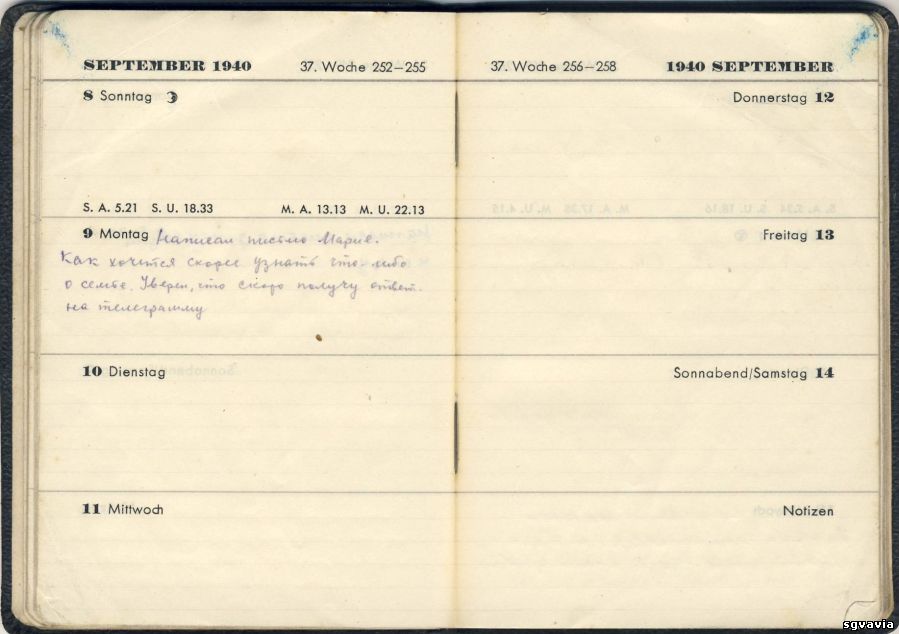 SEPTEMBER 1940 37. Woche 252–255
8 Sonntag
S. A. 5.21 S. U. 18.33 M. A. 13.13 M. U. 22.13
9 Montag Написал письмо Марие.
Как хочется скорее узнать что либо
о семье. Уверен, что скоро получу ответ.
на телеграмму
10 Dienstag
11 Mittwoch
37. Woche 256–258 1940 SEPTEMBER
Donnerstag 12
Freitag 13
Sonnabend/Samstag 14
Notizen
sgvavia